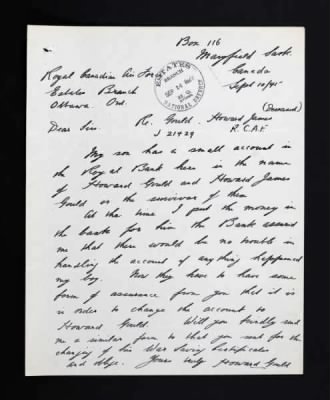 Box 116
Maryfield Sask.
Canada
Sept 10/45
Royal Canadian Air Force
Estates Branch
Ottawa. Ont.
ESTATES
BRANCH
SEP 14
NATIONAL DEFENCE
(Deceased)
Dear Sir. Re. Gould. Howard James
J 21929 R.C.A.F.
My son has a small account in
the Royal Bank here in the name
of Howard Gould and Howard James
Gould or the survivor of them
At the time I put the money in
the bank for him the Bank assured
me that there would be no trouble in
handling the account if anything happened
my boy. Now they have to have some
form of assurance from you that it is
in order to change the account to
Howard Gould. Will you kindly send
me a similar form to that you sent for the
changing of his War Saving Certificates
and oblige. Yours truly Howard Gould